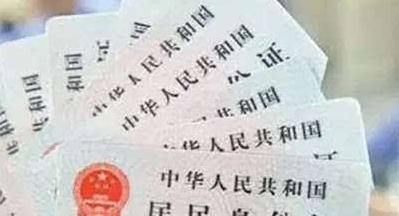 中华人民共和国
份证
中华人民共和国
中华人民共和国
中华人民共和国
居民身份